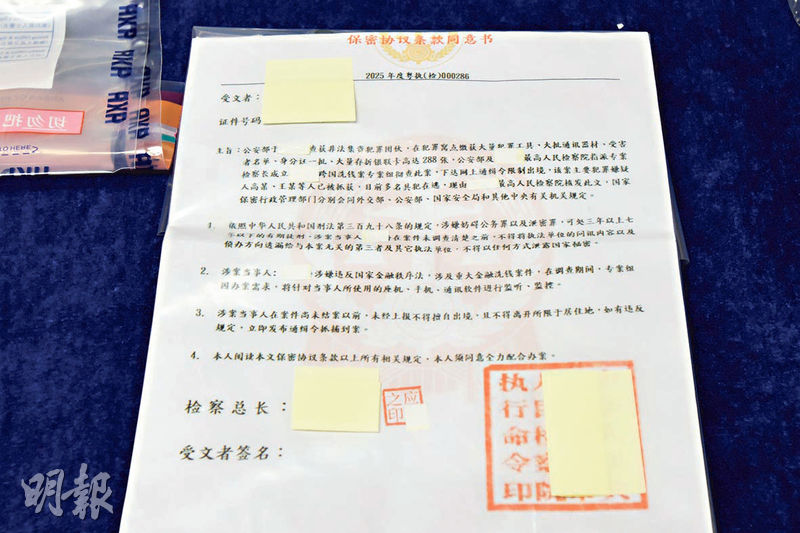 AXP
切勿把
保密协议条款同意书
2025 年度粤执(检)000286
受文者:
证件号码
主旨:公安部于 查获非法集资犯罪团伙,在犯罪窝点缴获大量犯罪工具、大批通讯器材、受害
者名单、身分证一批、大量存折银联卡高达 288 张,公安部及 最高人民检察院指派专案
检察长成立 跨国洗钱案专案组彻查此案,下达网上通缉令限制出境,该案主要犯罪嫌疑
人高某、王某等人已被抓获,目前多名其犯在逃,现由 最高人民检察院核发此文,国家
保密行政管理部门分别会同外交部、公安部、国家安全局和其他中央有关机关规定。
1. 依照中华人民共和国刑法第三百九十八条的规定,涉嫌妨碍公务罪以及泄密罪,可处三年以上七
年以下的有期徒刑,涉案当事人 在案件未调查清楚之前,不得将执法单位的问讯内容以及
侦办方向透漏给与本案无关的第三者及其它执法单位,不得以任何方式泄露国家秘密。
2. 涉案当事人: 涉嫌违反国家金融秩序法,涉及重大金融洗钱案件,在调查期间,专案组
因办案需求,将针对当事人所使用的座机、手机、通讯软件进行监听、监控。
3. 涉案当事人在案件尚未结案以前,未经上报不得擅自出境,且不得离开所限于居住地,如有违反
规定,立即发布通缉令抓捕到案。
4. 本人阅读本文保密协议条款以上所有相关规定,本人须同意全力配合办案。
检察总长:
应
之印
受文者签名:
执
行
命
令
印
院
明報